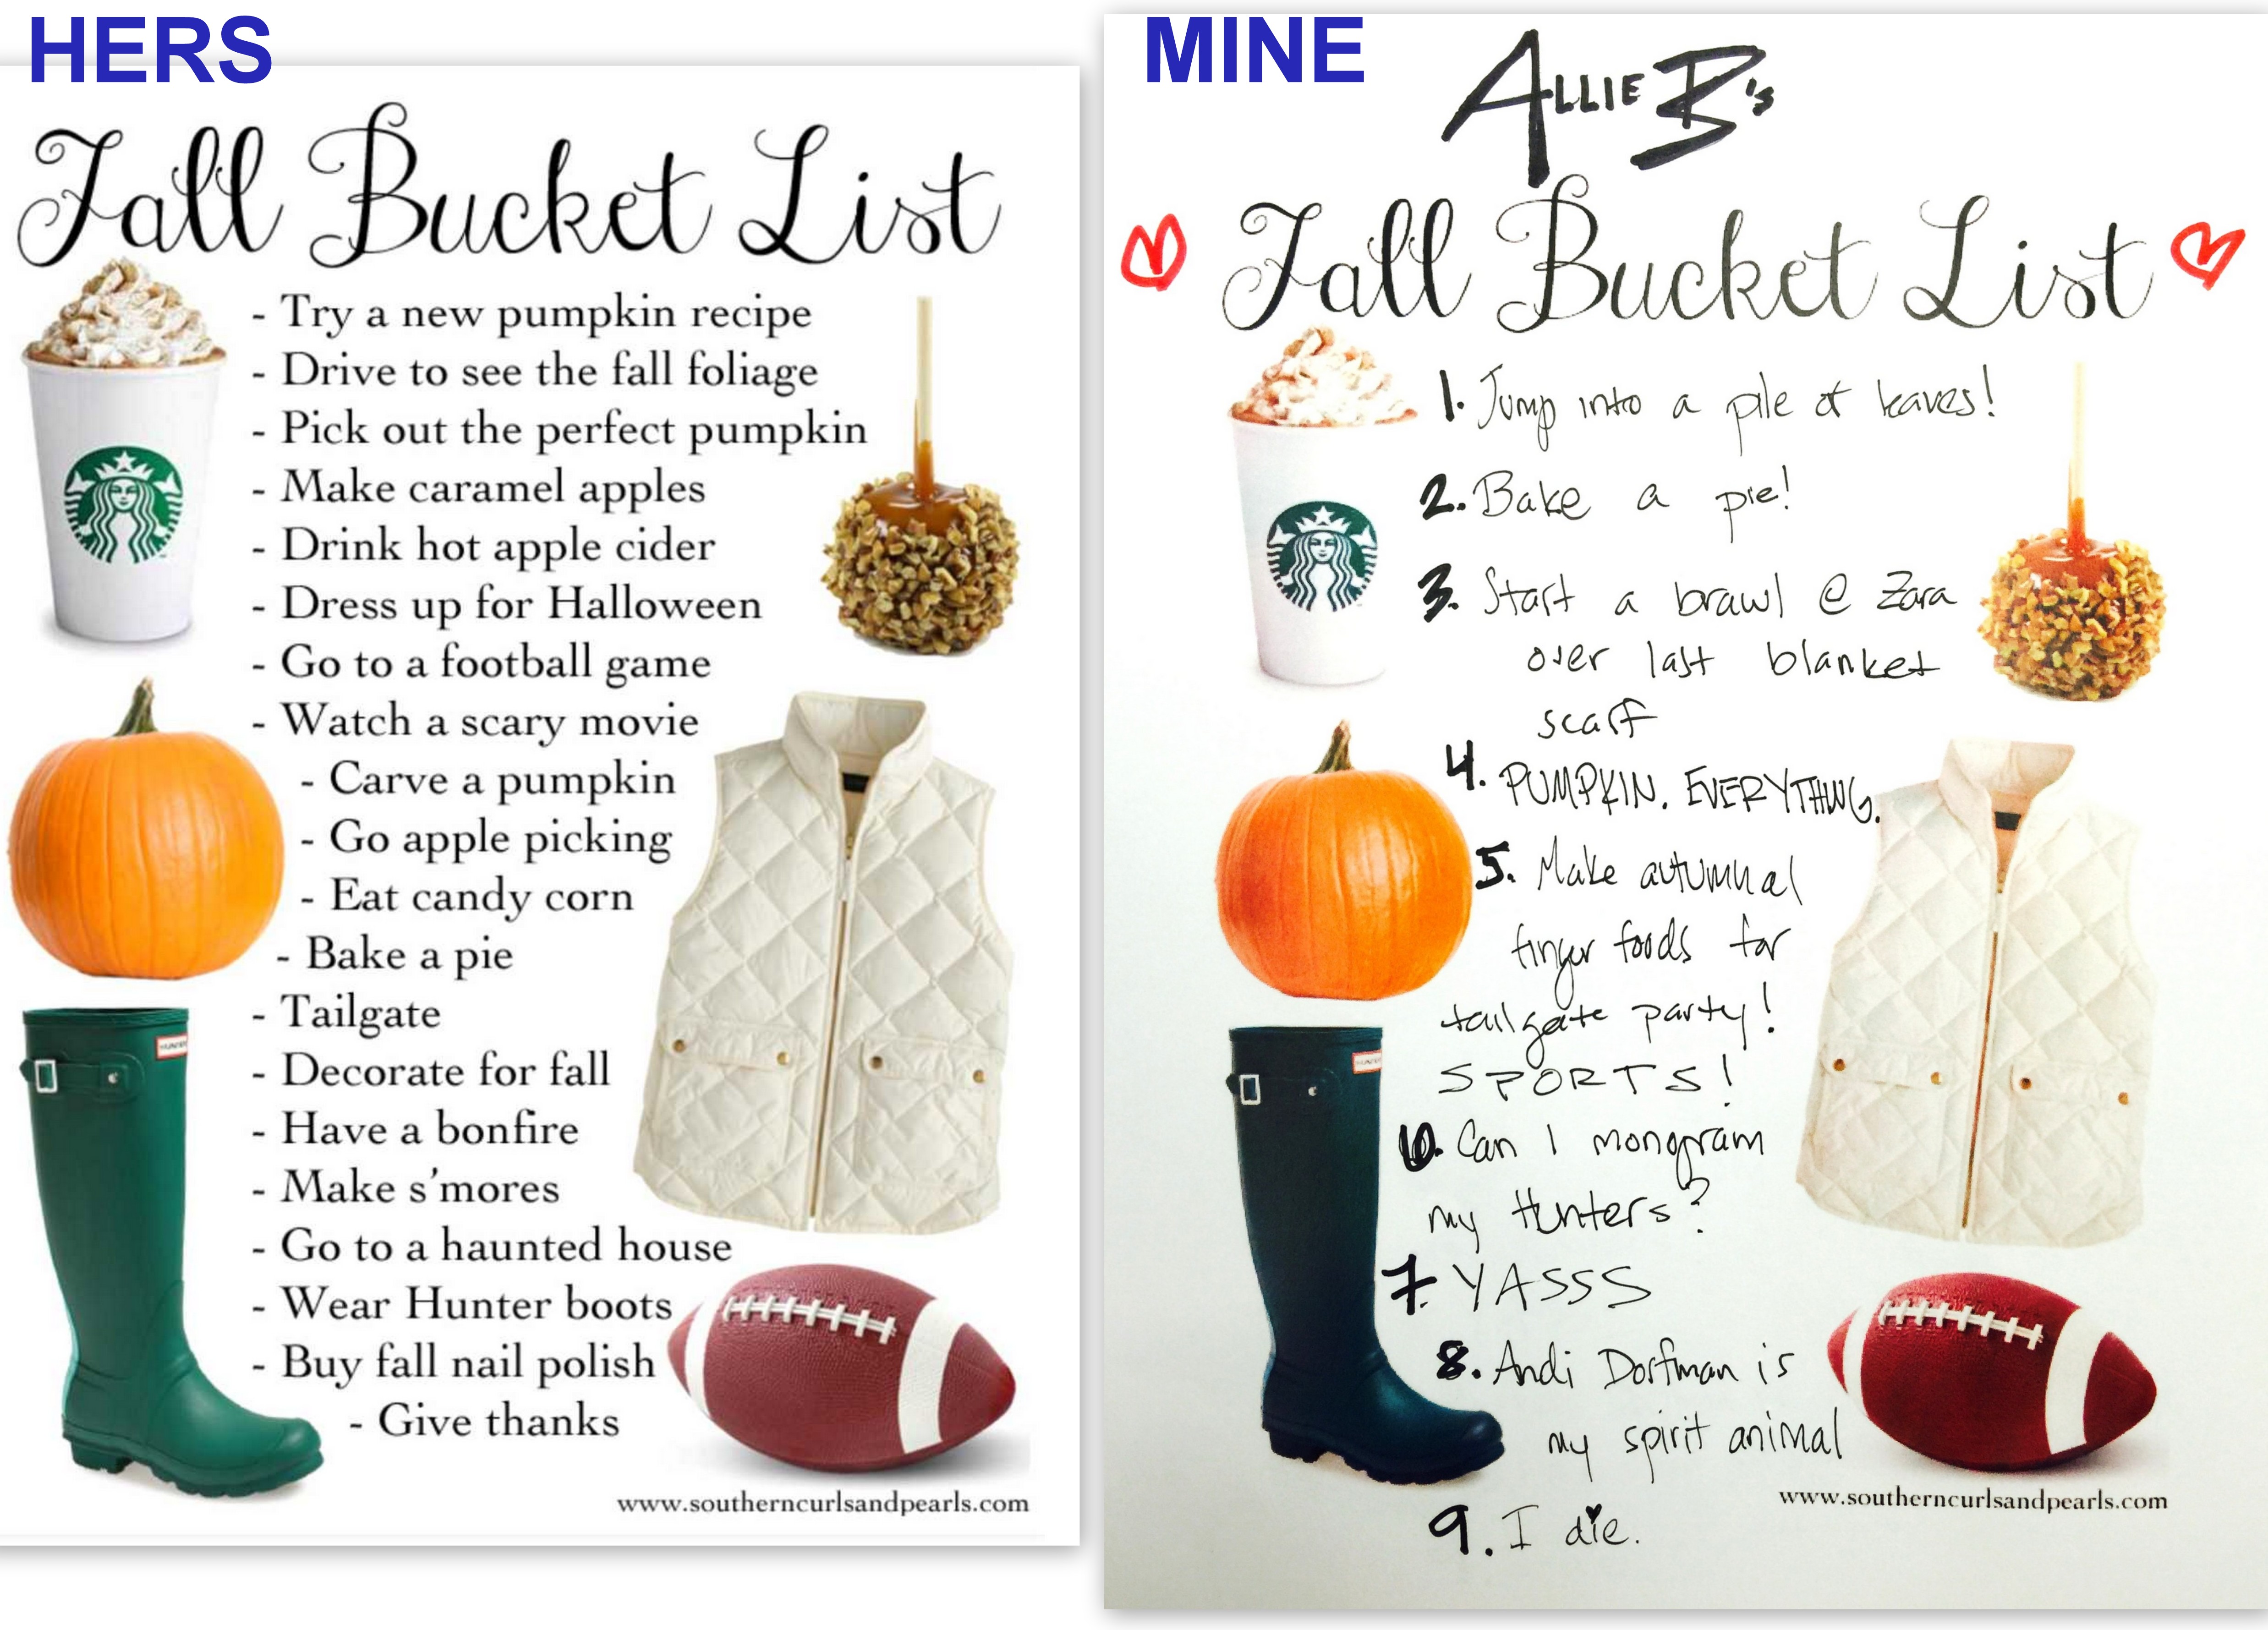 HERS
Fall Bucket List
- Try a new pumpkin recipe
- Drive to see the fall foliage
- Pick out the perfect pumpkin
- Make caramel apples
- Drink hot apple cider
- Dress up for Halloween
- Go to a football game
- Watch a scary movie
- Carve a pumpkin
- Go apple picking
- Eat candy corn
- Bake a pie
- Tailgate
- Decorate for fall
- Have a bonfire
- Make s'mores
- Go to a haunted house
- Wear Hunter boots
- Buy fall nail polish
- Give thanks
HUNTER
www.southerncurlsandpearls.com
MINE
ALLIE B's
Fall Bucket List
1. Jump into a pile of leaves!
2. Bake a pie!
3. Start a brawl @ Zara
over last blanket
scarf
4. PUMPKIN. EVERYTHING.
5. Make autumnal
finger foods for
tailgate party!
SPORTS!
6. Can I monogram
my Hunters?
7. YASSS
8. Andi Dorfman is
my spirit animal
9. I die.
HUNTER
www.southerncurlsandpearls.com